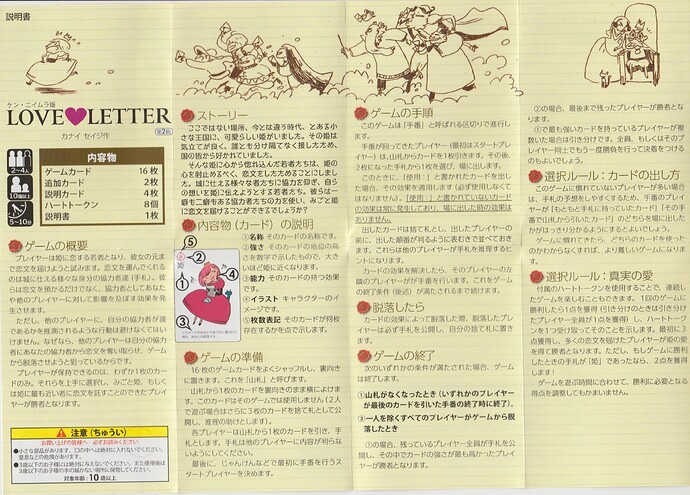 説明書
ケン・ニイムラ版
LOVE LETTER
第2版
カナイ セイジ作
2~4人
10歳以上
5~10分
内容物
ゲームカード 16枚
追加カード 2枚
説明カード 4枚
ハートトークン 8個
説明書 1枚
ゲームの概要
プレイヤーは姫に恋する若者となり、彼女の元ま
で恋文を届けようと試みます。恋文を運んでくれる
のは城に仕える様々な身分の協力者達（手札）。彼
らは恋文を預かるだけでなく、協力者としてあなた
や他のプレイヤーに対して影響を及ぼす効果を発
生させます。
ただし、他のプレイヤーに、自分の協力者が誰
であるかを推測されるような行動は避けなくてはい
けません。なぜなら、他のプレイヤーは自分の協力
者にあなたの協力者から恋文を奪い取らせ、ゲーム
から脱落させようと狙っているからです。
プレイヤーが保持できるのは、わずか1枚のカー
ドのみ。それらを上手に選択し、みごと姫、もしく
は姫に最も近い者に恋文を託すことのできたプレイ
ヤーが勝者となります。
注意（ちゅうい）
お買い上げの皆様へ 必ずお読みください
●小さな部品があります。口の中へは絶対に入れないでください。
窒息などの危険があります。
●3歳以下のお子様には絶対に与えないでください。また使用後は
3歳以下のお子様の手の届かない場所に保管してください。
対象年齢：10歳以上
ストーリー
ここではない場所、今とは違う時代、とある小
さな王国に、可愛らしい姫がいました。その姫は
気立てが良く、誰とも分け隔てなく接したため、
国の皆から好かれていました。
そんな姫に心から惚れ込んだ若者たちは、姫の
心を射止めるべく、恋文をしたためることにしまし
た。城に仕える様々な者たちに協力を仰ぎ、自ら
の想いを姫に伝えようとする若者たち。彼らは一
癖も二癖もある協力者たちの力を使い、みごと姫
に恋文を届けることができるでしょうか？
内容物（カード）の説明
①名称 そのカードの名称です。
②強さ そのカードの地位の高
さを数字で示したもので、大
きいほど姫に近くなります。
③能力 そのカードの持つ効果
です。
④イラスト キャラクターのイ
メージです。
⑤枚数表記 そのカードが何枚
存在するかを点で示します。
ゲームの準備
16枚のゲームカードをよくシャッフルし、裏向き
に置きます。これを「山札」と呼びます。
山札から1枚のカードを裏向きのまま横によけま
す。このカードはそのゲームでは使用しません（2人
で遊ぶ場合はさらに3枚のカードを捨て札として公
開し、推理の助けとします）。
各プレイヤーは山札から1枚のカードを引き、手
札とします。手札は他のプレイヤーに内容が判らな
いようにしてください。
最後に、じゃんけんなどで最初に手番を行うス
タートプレイヤーを決めます。
ゲームの手順
このゲームは「手番」と呼ばれる区切りで進行し
ます。
手番が回ってきたプレイヤー（最初はスタートプレ
イヤー）は、山札からカードを1枚引きます。その後、
2枚になった手札から1枚を選び、場に出します。
このときに、「使用：」と書かれたカードを出し
た場合、その効果を適用します（必ず使用しなくて
はなりません）。「使用：」と書かれていないカード
の効果は常に発生しており、場に出した時の効果は
ありません。
カードは捨て札とし、出したプレイヤーの
前に、出した順番が判るように表むきで並べておき
ます。これらは他のプレイヤーが手札を推理するヒ
ントになります。
カードの効果を解決したら、そのプレイヤーの左
隣のプレイヤーが手番を行います。これをゲー
ムの終了条件（後述）が満たされるまで続けます。
脱落したら
カードの効果によって脱落した際、脱落したプレイ
ヤーは必ず手札を公開し、自分の捨て札に置きます。
ゲームの終了
次のいずれかの条件が満たされた場合、ゲーム
は終了します。
①山札がなくなったとき（いずれかのプレイヤー
が最後のカードを引いた手番の終了時に終了）。
②一人を除くすべてのプレイヤーがゲームから脱
落したとき
①の場合、残っているプレイヤー全員が手札を公
開し、その中でカードの強さが最も高かったプレイヤ
ーが勝者となります。
②の場合、最後まで残ったプレイヤーが勝者となりま
す。
①で最も強いカードを持っているプレイヤーが複
数いた場合は引き分けです。全員、もしくはそのプ
レイヤー同士でもう一度勝負を行って決着をつける
のもよいでしょう。
選択ルール：カードの出し方
このゲームに慣れていないプレイヤーが多い場合
は、手札の予想をしやすくするため、手番のプレイヤ
ーが「もともと手札に持っていたカード」と「その手
番で山札から引いたカード」のどちらを場に出した
かがはっきり分かるようにするとよいでしょう。
ゲームに慣れてきたら、どちらのカードを使った
のかわからなくすれば、より難しいゲームになります。
選択ルール：真実の愛
付属のハートトークンを使用することで、連続し
たゲームを楽しむこともできます。1回のゲームに
勝利したら1点を獲得（引き分けのときは引き分け
たプレイヤー全員が1点を獲得）し、ハートトーク
ンを1つ受け取ってそのことを示します。最初に3
点獲得し、多くの恋文を届けたプレイヤーが姫の愛
を得て勝者となります。ただし、もしゲームに勝利
したときの手札が「姫」であったなら、2点を獲得
します！
ゲームを遊ぶ時間に合わせて、勝利に必要となる
得点を調整してもかまいません。